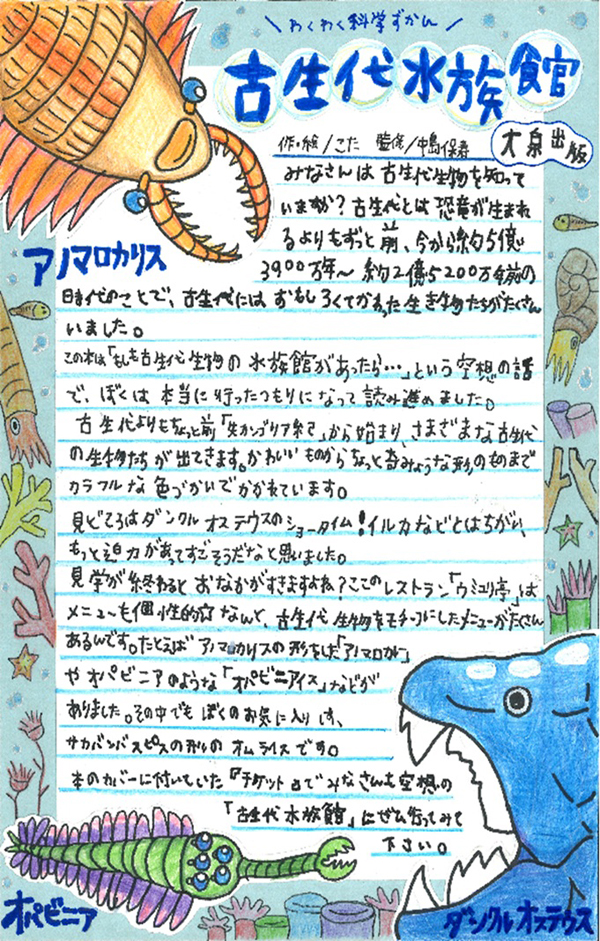 ＼わくわく科学ずかん／
古生代水族館
作・絵/こた 監修/中島保寿
大泉出版
みなさんは古生代生物を知って
いますか？古生代とは恐竜が生まれ
るよりもずっと前、今から約5億
3900万年～約2億5200万年前の
時代のことで、古生代にはおもしろくてかわった生き物たちがたくさん
いました。
この本は「もしも古生代生物の水族館があったら…」という空想の話
で、ぼくは本当に行ったつもりになって読み進めました。
古生代よりもちょっと前「先カンブリア紀」から始まり、さまざまな古生代
の生物たちが出てきます。かわいいものからちょっと奇みょうな形のものまで
カラフルな色づかいでかかれています。
見どころはダンクルオステウスのショータイム！イルカなどとはちがい、
もっと迫力があってすごそうだなと思いました。
見学が終わるとおなかがすきますよね？ここのレストラン「ウミユリ亭」は
メニューも個性的！なんと、古生代生物をモチーフにしたメニューがたくさん
あるんです。たとえばアノマロカリスの形をした「アノマロカレー」
やオパビニアのような「オパビニアイス」などが
ありました。その中でもぼくのお気に入りは、
サカバンバスピスの形のオムライスです。
本のカバーに付いていた『チケット』でみなさんも空想の
「古生代水族館」にぜひ行ってみて
下さい。
アノマロカリス
オパビニア
ダンクルオステウス